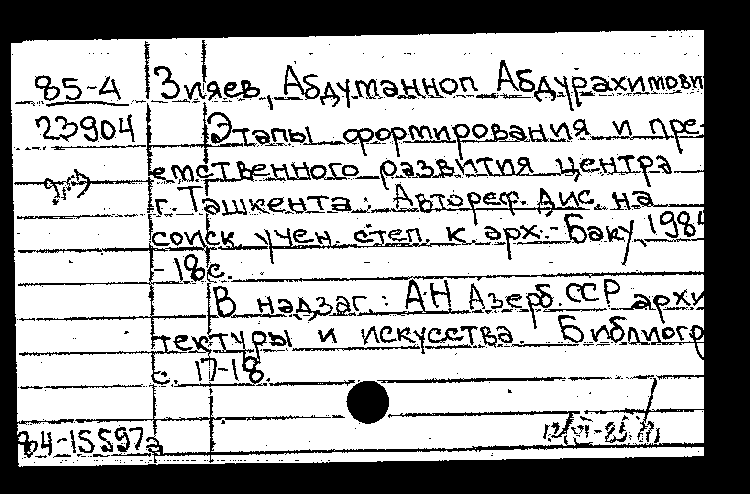 85-4 Зияев, Абдуманноп Абдурахимови
23904 Этапы формирования и пре-
емственного развития центра
г. Ташкента: Автореф. дис. на
соиск. учен. степ. к. арх.-Баку, 1984
-18с.
В надзаг.: АН Азерб.ССР архи
тектуры и искусства. Библиогр
с. 17-18.
84-15597а